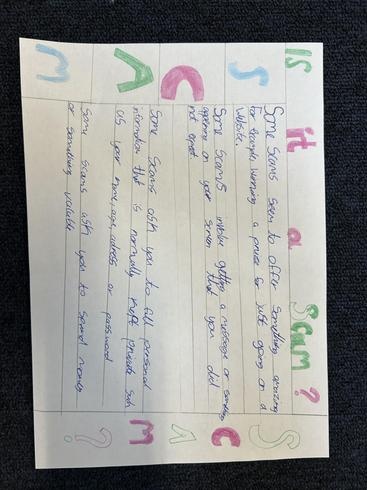 IS it a Scam?
S Some Scams seem to offer something amazing S
for example winning a prise for just going on a
website.
C Some Scams involve getting a message or something C
appering on your screen that you did
not expect
A Some Scams ask you to fill personal A
information that is normally kept private such
as your name, age, adress or password M
M Some scams ask you to send money ?
or something valuable